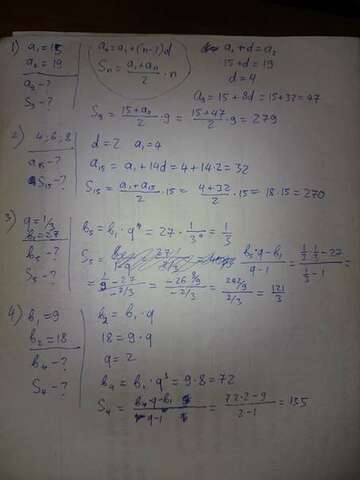 1) a₁=15
a₂=19
a₉-?
S₉-?
aₙ=a₁+(n-1)d
Sₙ=(a₁+aₙ)/2·n
a₁+d=a₂
15+d=19
d=4
a₉=15+8d=15+32=47
S₉=(15+a₉)/2·9=(15+47)/2·9=279
2) 4;6;8
a₁₅-?
S₁₅-?
d=2 a₁=4
a₁₅=a₁+14d=4+14·2=32
S₁₅=(a₁+a₁₅)/2·15=(4+32)/2·15=18·15=270
3) q=1/3
b₁=27
b₅-?
S₅-?
b₅=b₁·q⁴=27·1/3⁴=1/3
S₅= (b₅·q-b₁)/(q-1)=(1/3·1/3-27)/(1/3-1)=
=(1/9-27)/(-2/3)=(-26 8/9)/(-2/3)=(242/9)/(2/3)=121/3
4) b₁=9
b₂=18
b₄-?
S₄-?
b₂=b₁·q
18=9·q
q=2
b₄=b₁·q³=9·8=72
S₄=(b₄·q-b₁)/(q-1)=(72·2-9)/(2-1)=135